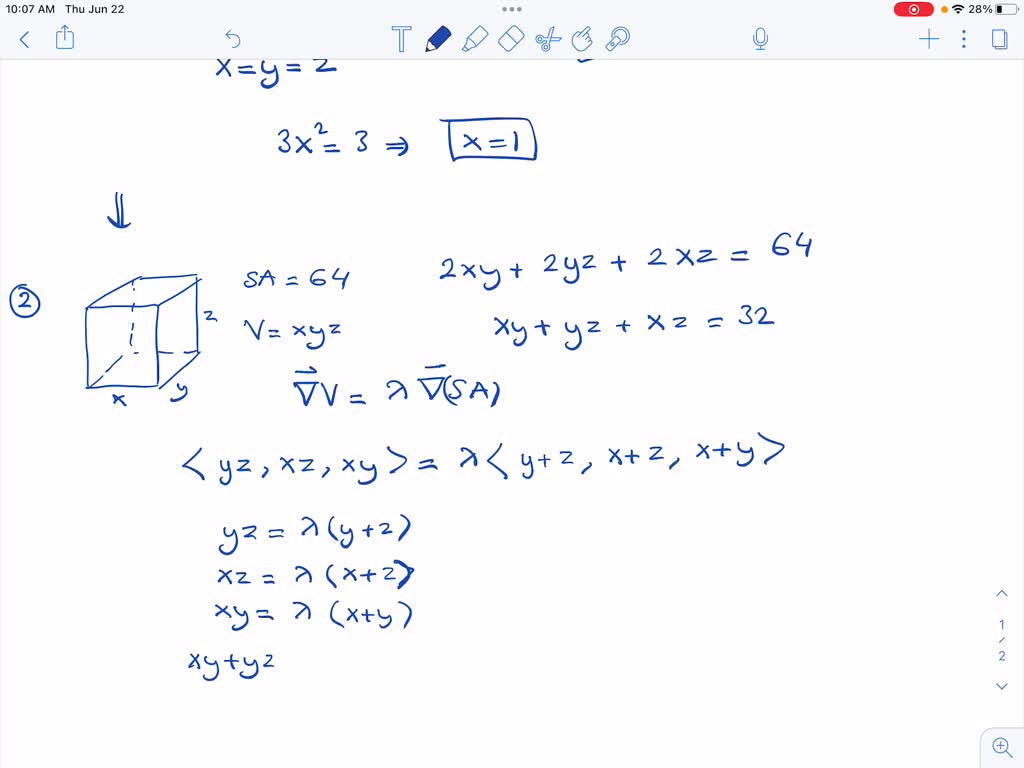 10:07 AM Thu Jun 22
28%
x=y=z
3x²=3 ⇒ x=1
⇓
2
z
x
y
SA = 64
V = xyz
2xy + 2yz + 2xz = 64
xy + yz + xz = 32
∇⃗V = λ ∇⃗(SA)
<yz, xz, xy> = λ<y+z, x+z, x+y>
yz = λ(y+z)
xz = λ(x+z)
xy = λ(x+y)
xy+yz
1
/
2